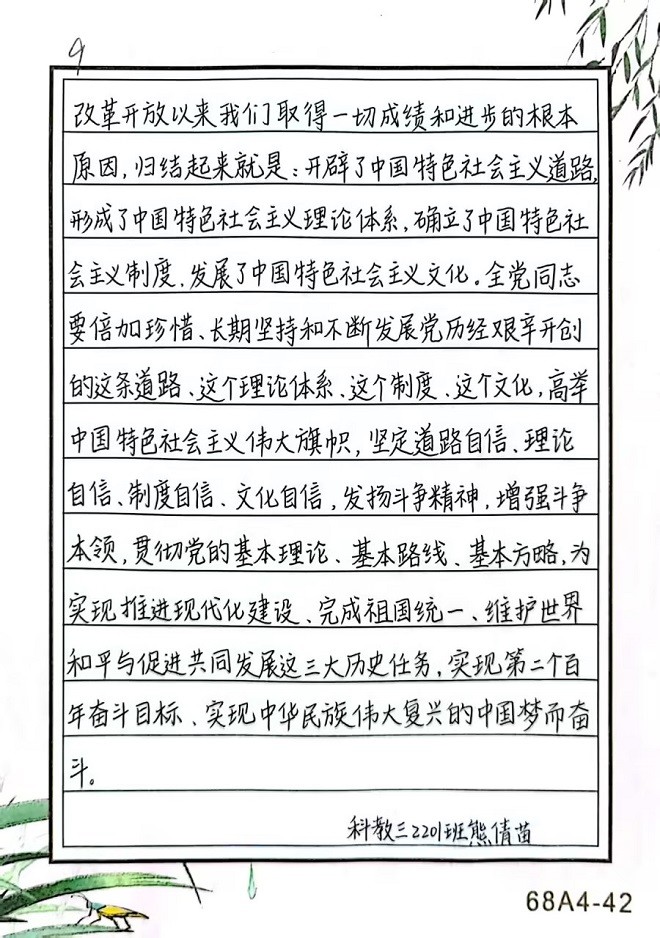 9
改革开放以来我们取得一切成绩和进步的根本
原因,归结起来就是:开辟了中国特色社会主义道路,
形成了中国特色社会主义理论体系,确立了中国特色社
会主义制度、发展了中国特色社会主义文化。全党同志
要倍加珍惜、长期坚持和不断发展党历经艰辛开创
的这条道路、这个理论体系、这个制度、这个文化,高举
中国特色社会主义伟大旗帜,坚定道路自信、理论
自信、制度自信、文化自信,发扬斗争精神,增强斗争
本领,贯彻党的基本理论、基本路线、基本方略,为
实现推进现代化建设、完成祖国统一、维护世界
和平与促进共同发展这三大历史任务,实现第二个百
年奋斗目标、实现中华民族伟大复兴的中国梦而奋
斗。
科教三2201班熊倩苗
68A4-42